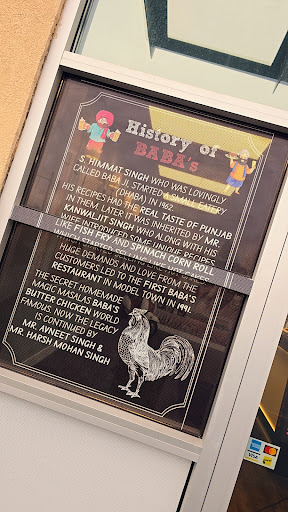 History of
BABA's
S. HIMMAT SINGH WHO WAS LOVINGLY
CALLED BABA JI, STARTED A SMALL EATERY
(DHABA) IN 1962.
HIS RECIPES HAD THE REAL TASTE OF PUNJAB
IN THEM. LATER IT WAS INHERITED BY MR.
KANWALJIT SINGH WHO ALONG WITH HIS
WIFE INTRODUCED SOME UNIQUE RECIPES
LIKE FISH FRY AND SPINACH CORN ROLL
WHICH STARTED
HUGE DEMANDS AND LOVE FROM THE
CUSTOMERS LED TO THE FIRST BABA'S
RESTAURANT IN MODEL TOWN IN 1991.
THE SECRET HOMEMADE
MAGIC MASALAS BABA'S
BUTTER CHICKEN WORLD
FAMOUS. NOW THE LEGACY
IS CONTINUED BY
MR. AVNEET SINGH &
MR. HARSH MOHAN SINGH
VISA